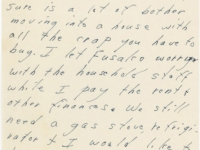 sure is a lot of bother
moving into a house with
all the crap you have to
buy. I let Fusako worry
with the household stuff
while I pay the rent &
other finances. We still
need a gas stove, refrig-
rator & I would like t